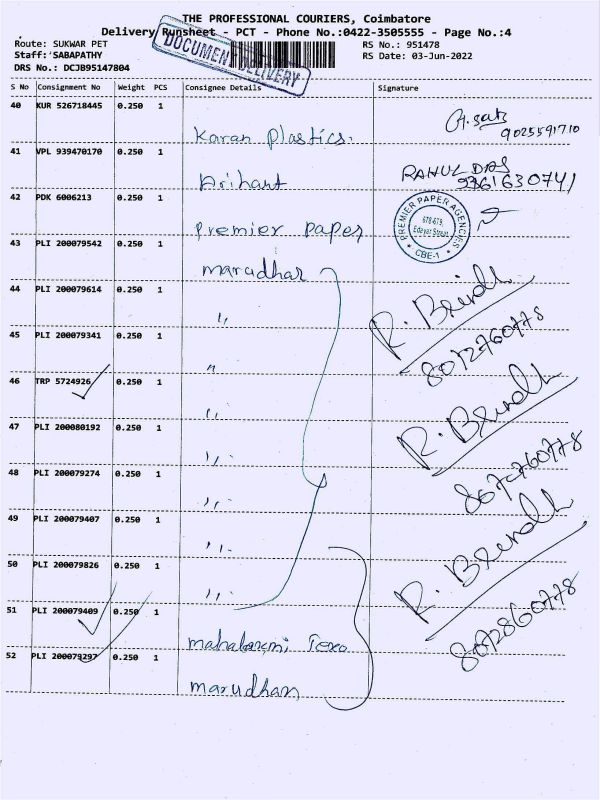 THE PROFESSIONAL COURIERS, Coimbatore
Delivery Runsheet - PCT - Phone No.:0422-3505555 - Page No.:4
Route: SUKWAR PET
RS No.: 951478
Staff: SABAPATHY
RS Date: 03-Jun-2022
DRS No.: DCJB95147804
DOCUMENT DELIVERY
S No Consignment No Weight PCS Consignee Details Signature
40 KUR 526718445 0.250 1
Karan Plastics.
9025591710
41 VPL 939470170 0.250 1
Arihant
RAHUL DAS
9361630741
42 PDK 6006213 0.250 1
Premier Paper
PREMIER PAPER AGENCIES
678-679,
Edayar Street,
* CBE-1 *
43 PLI 200079542 0.250 1
marudhar
44 PLI 200079614 0.250 1
"
R. Brindh
8072760778
45 PLI 200079341 0.250 1
"
46 TRP 5724926 0.250 1
"
47 PLI 200080192 0.250 1
"
R. Brindh
8072760778
48 PLI 200079274 0.250 1
"
49 PLI 200079407 0.250 1
"
50 PLI 200079826 0.250 1
"
R. Brindh
8072860778
51 PLI 200079409 0.250 1
mahalaxmi Texo
52 PLI 200079297 0.250 1
marudhar